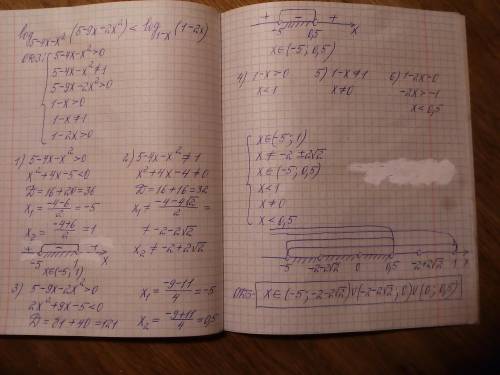 log₅₋₄ₓ₋ₓ²(5-9x-2x²) < log₁₋ₓ(1-2x)
ОДЗ: { 5-4x-x²>0
5-4x-x²≠1
5-9x-2x²>0
1-x>0
1-x≠1
1-2x>0
1) 5-4x-x²>0
x²+4x-5<0
D=16+20=36
x₁=(-4-6)/2=-5
x₂=(-4+6)/2=1
+ - +
-5 1 x
x∈(-5;1)
2) 5-4x-x²≠1
x²+4x-4≠0
D=16+16=32
x₁≠(-4-4√2)/2=
≠-2-2√2
x₂≠-2+2√2
3) 5-9x-2x²>0
2x²+9x-5<0
D=81+40=121
x₁=(-9-11)/4=-5
x₂=(-9+11)/4=0,5
+ - +
-5 0,5 x
x∈(-5;0,5)
4) 1-x>0
x<1
5) 1-x≠1
x≠0
6) 1-2x>0
-2x>-1
x<0,5
{ x∈(-5;1)
x≠-2±2√2
x∈(-5;0,5)
x<1
x≠0
x<0,5
-5 -2-2√2 0 0,5 -2+2√2 1 x
ОДЗ: x∈(-5;-2-2√2)∪(-2-2√2;0)∪(0;0,5)